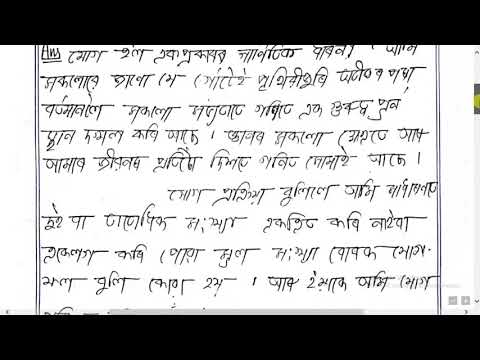 Ans যোগ হ'ল এক প্ৰকাৰৰ গাণিতিক ধাৰণা। আমি
সকলোৱে জানো যে গোটেই পৃথিৰীতে অতীতৰ পৰা
বৰ্তমানলৈ সকলো সময়তে গণিতে এক গুৰুত্ব পূৰ্ন
স্থান দখল কৰি আছে। জ্ঞানৰ সকলো ক্ষেত্ৰতে আৰু
আমাৰ জীৱনৰ প্ৰতিটো দিশতে গণিত সোমাই আছে।
যোগ প্ৰক্ৰিয়া বুলিলে আমি সাধাৰণতে
দুই বা ততোধিক সংখ্যা একত্ৰিত কৰি নাইবা
একেলগ কৰি পোৱা মুল সংখ্যা বোৰক যোগ-
ফল বুলি কোৱা হয়। আৰু ইয়াকে আমি যোগ